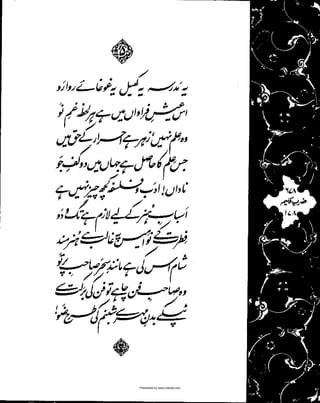 ۵
یہ مدرسہ یہ کھیل یہ غوغائے روارو
اس عیشِ فراواں میں ہے ہر لحظہ غمِ نو
وہ علم نہیں، زہر ہے احرار کے حق میں
جس علم کا حاصل ہے جہاں میں دو کفِ جو
ناداں! ادب و فلسفہ کچھ چیز نہیں ہے
اسبابِ ہنر کے لیے لازم ہے تگ و دو
فطرت کے نوامیس پہ غالب ہے ہنرمند
شام اس کی ہے مانندِ سحر صاحبِ پرتو
وہ صاحبِ فن چاہے تو فن کی برکت سے
ٹپکے بدنِ مہر سے شبنم کی طرح ضو!
۶۷۸
ضرب کلیم
۱۷۸
Presented by